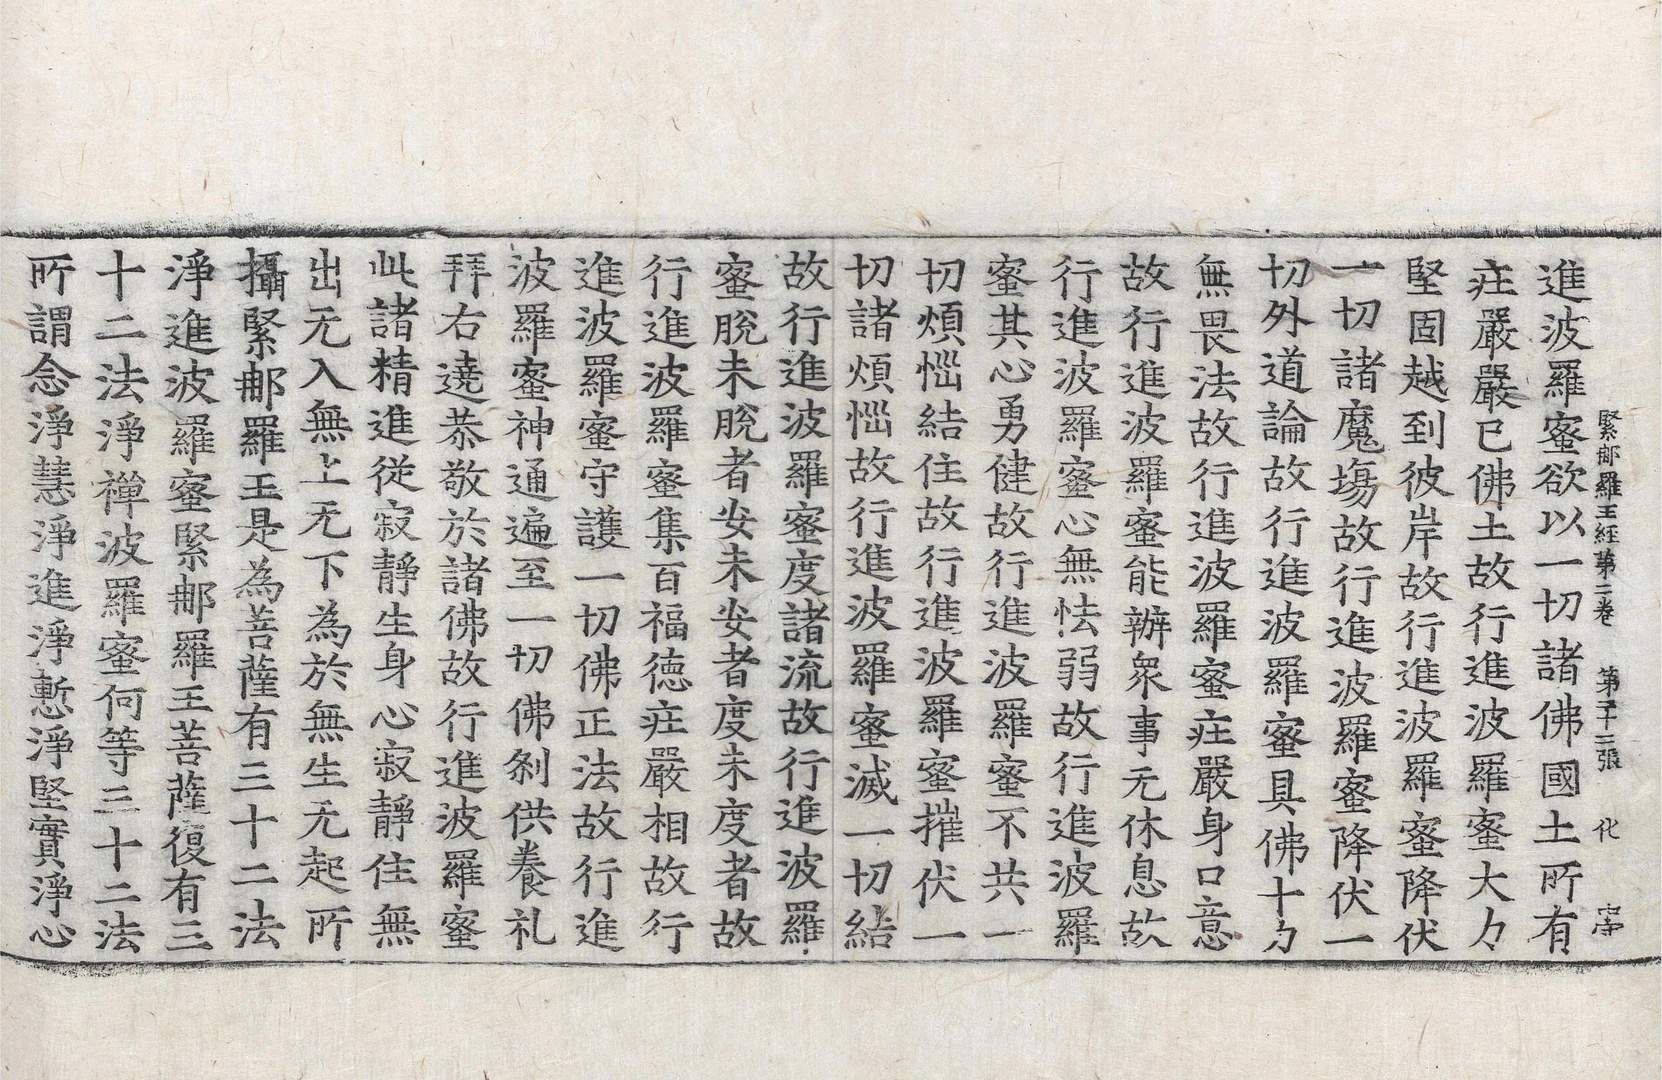 緊䣼羅王經第二卷 第二十二張 化
進波羅蜜欲以一切諸佛國土所有
疘嚴嚴已佛土故行進波羅蜜大力
堅固越到彼岸故行進波羅蜜降伏
一切諸魔塲故行進波羅蜜降伏一
切外道論故行進波羅蜜具佛十力
無畏法故行進波羅蜜疘嚴身口意
故行進波羅蜜能辦衆事无休息故
行進波羅蜜心無怯弱故行進波羅
蜜其心勇健故行進波羅蜜不共一
切煩惱結住故行進波羅蜜摧伏一
切諸煩惱故行進波羅蜜滅一切結
故行進波羅蜜度諸流故行進波羅
蜜脫未脫者安未安者度未度者故
行進波羅蜜集百福德疘嚴相故行
進波羅蜜守護一切佛正法故行進
波羅蜜神通遍至一切佛刹供養礼
拜右遶恭敬於諸佛故行進波羅蜜
此諸精進從寂靜生身心寂靜住無
出无入無上无下為於無生无起所
攝緊䣼羅王是為菩薩有三十二法
淨進波羅蜜緊䣼羅王菩薩復有三
十二法淨禪波羅蜜何等三十二法
所謂念淨慧淨進淨慙淨堅實淨心